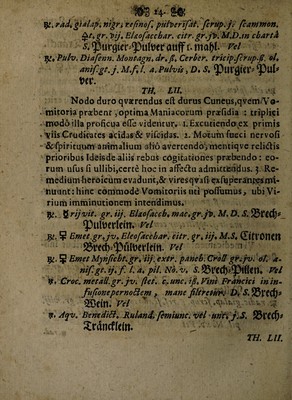 14.
℞. rad. gialap. nigr. resinos. pulverisat. scrup. j. scammon.
gr. vj. Elaosacchar. citr. gr. jv. M. D. in charta
S. Purgier-Pulver auff 1. mahl. Vel
℞. Pulv. Diasenn. Montagn. dr. ß. Cerber. tricip. scrup. ß. ol.
anis. gt. j. M. f. l. a. Pulvis, D. S. Purgier-Pul-
ver.
TH. LI.
Nodo duro quærendus est durus Cuneus, qvem Vo-
mitoria præbent, optima Maniacorum præsidia: triplici
modò illa proficua esse videntur. 1. Excutiendo ex primis
viis Crudicates acidas & viscidas. 2. Motum succi nervosi
& spirituum animalium aliò avertendo, mentique relictis
prioribus Ideis de aliis rebus cogitationes præbendo: eo-
rum usus si ullibi, certè hoc in affectu admittendus. 3. Re-
medium heroicum evadunt, & vires qvasi exsuperantes mi-
nuunt: hinc commodè Vomitoriis uti possumus, ubi Vi-
rium imminutionem intendimus.
℞. ☿rij vit. gr. iij. Elaosaccb. mac. gr. jv. M. D. S. Brech-
Pulverlein. Vel
℞. Emet. gr. jv. Eleosacchar. citr. gr. iij. M. S. Citronen
Brech-Pülverlein. Vel
℞. Emet Mynsicht. gr. iij. extr. paneb. Croll gr. jv. ol. a-
nis. gt. ij. f. l. a. pil. No. v. S. Brech-Pillen. Vel
℞. Croc. metall. gr. jv. stet. c. unc. iß. Vini Francici in in-
fusione per noctem, mane filtretur. D. S. Brech-
Wein. Vel
℞. Aqv. Benedict. Ruland. semiunc. vel unc. j. S. Brech-
Träncklein.
TH. LII.